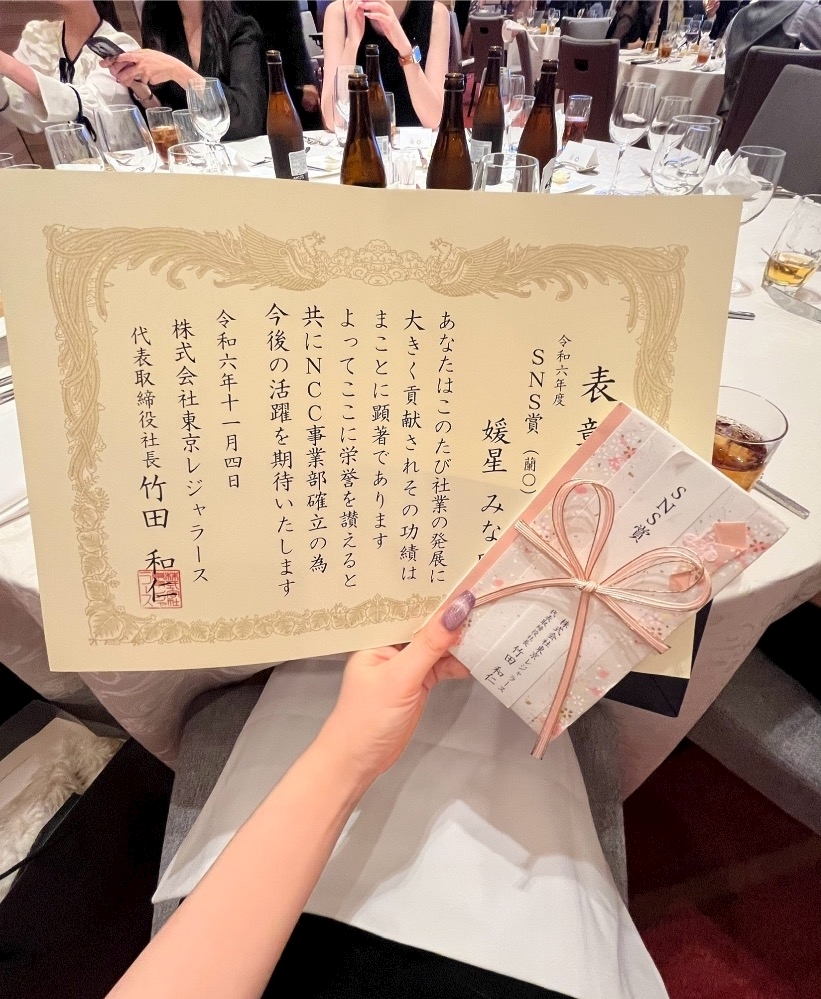 表章
令和六年度
SNS賞（蘭〇）
媛星 みな
あなたはこのたび社業の発展に
大きく貢献されその功績は
まことに顕著であります
よってここに栄誉を讃えると
共にNCC事業部確立の為
今後の活躍を期待いたします
令和六年十一月四日
株式会社東京レジャラース
代表取締役社長 竹田 和仁
SNS賞
株式会社東京レジャラース
代表取締役社長 竹田 和仁